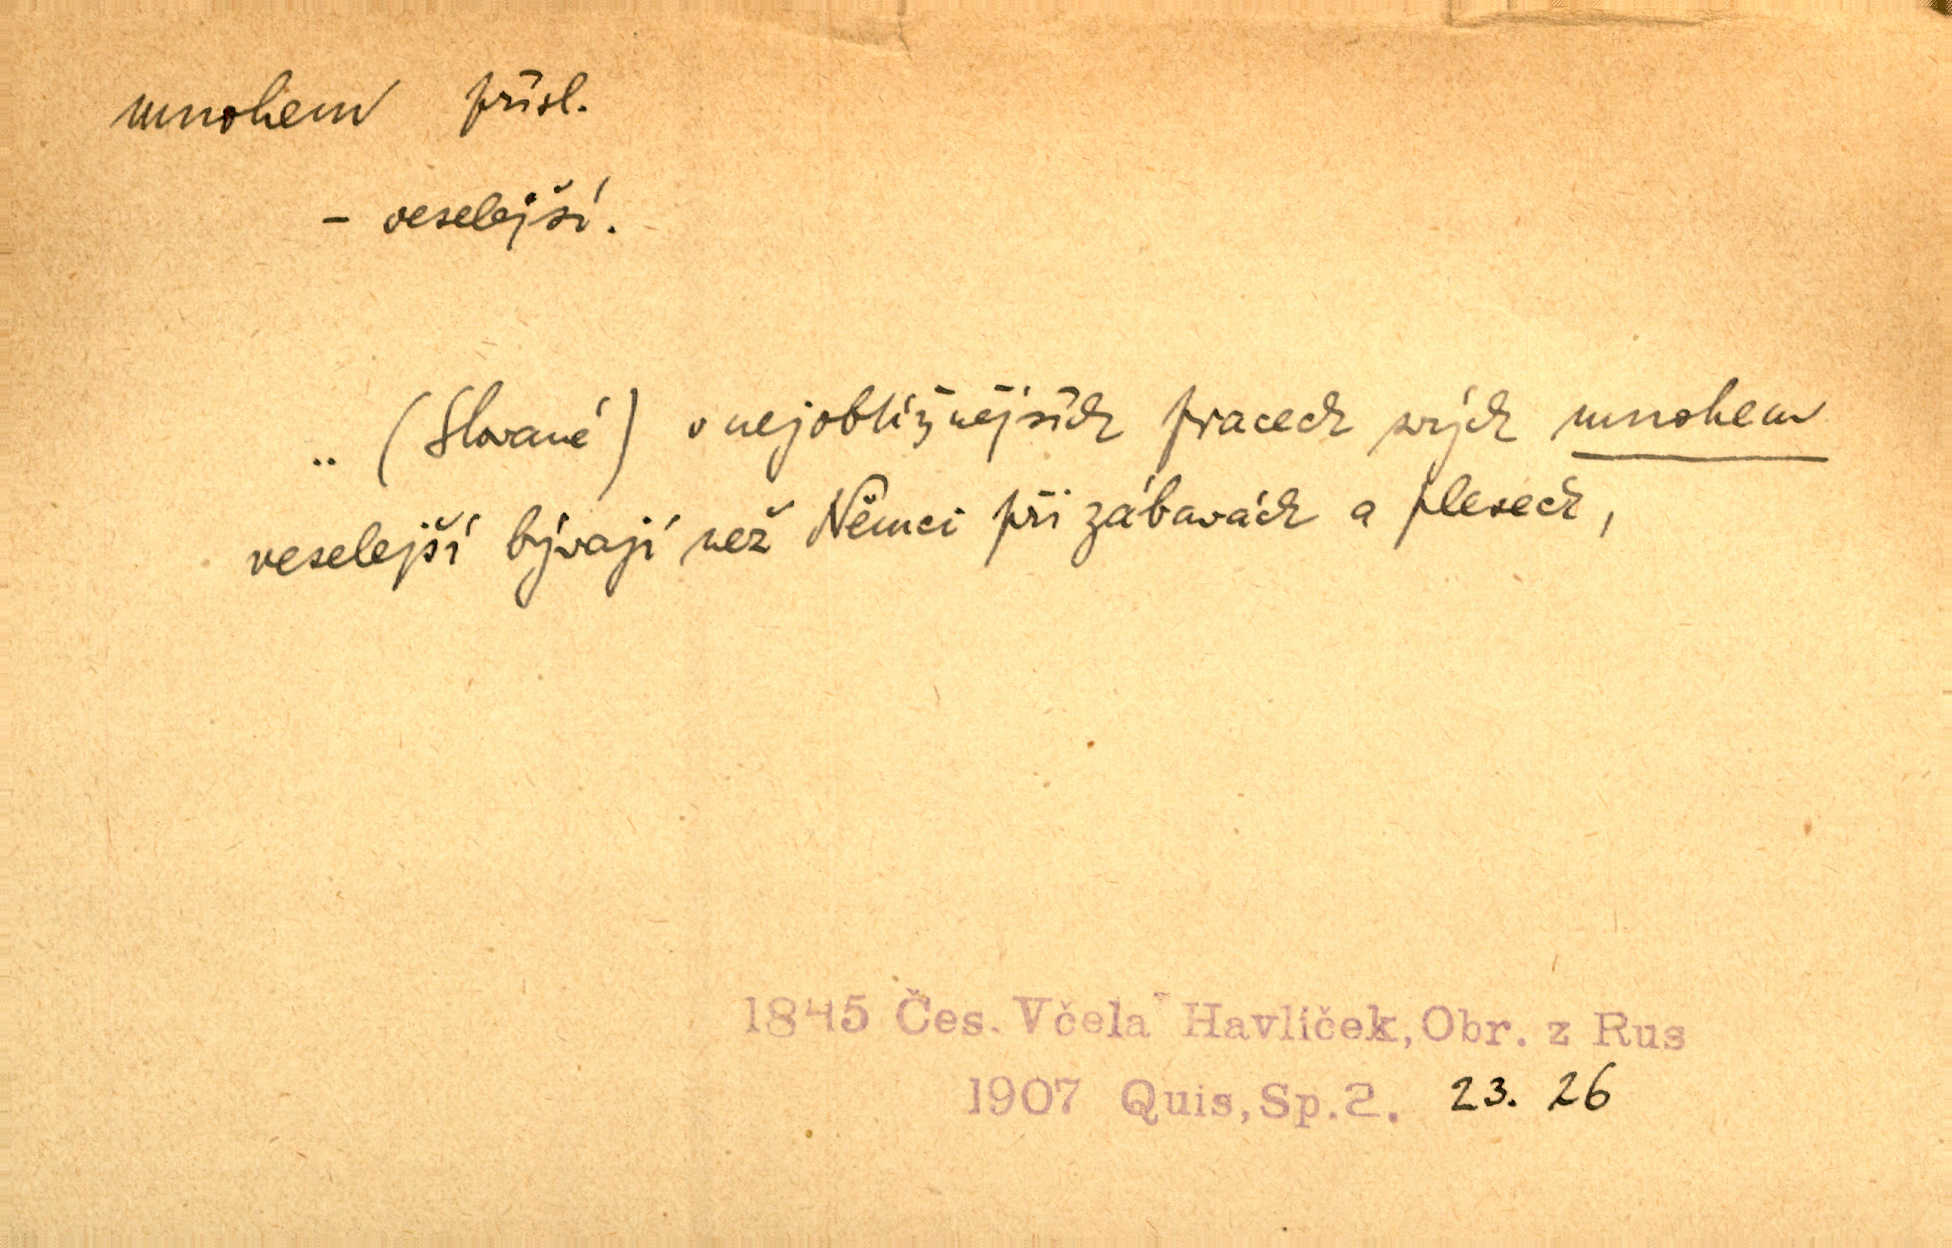 mnohem přísl.
- veselejší.
.. (Slované) v nejobtížnějších pracech svých mnohem
veselejší bývají než Němci při zábavách a plesech,
1845 Čes. Včela Havlíček, Obr. z Rus
1907 Quis, Sp. 2. 23. 26